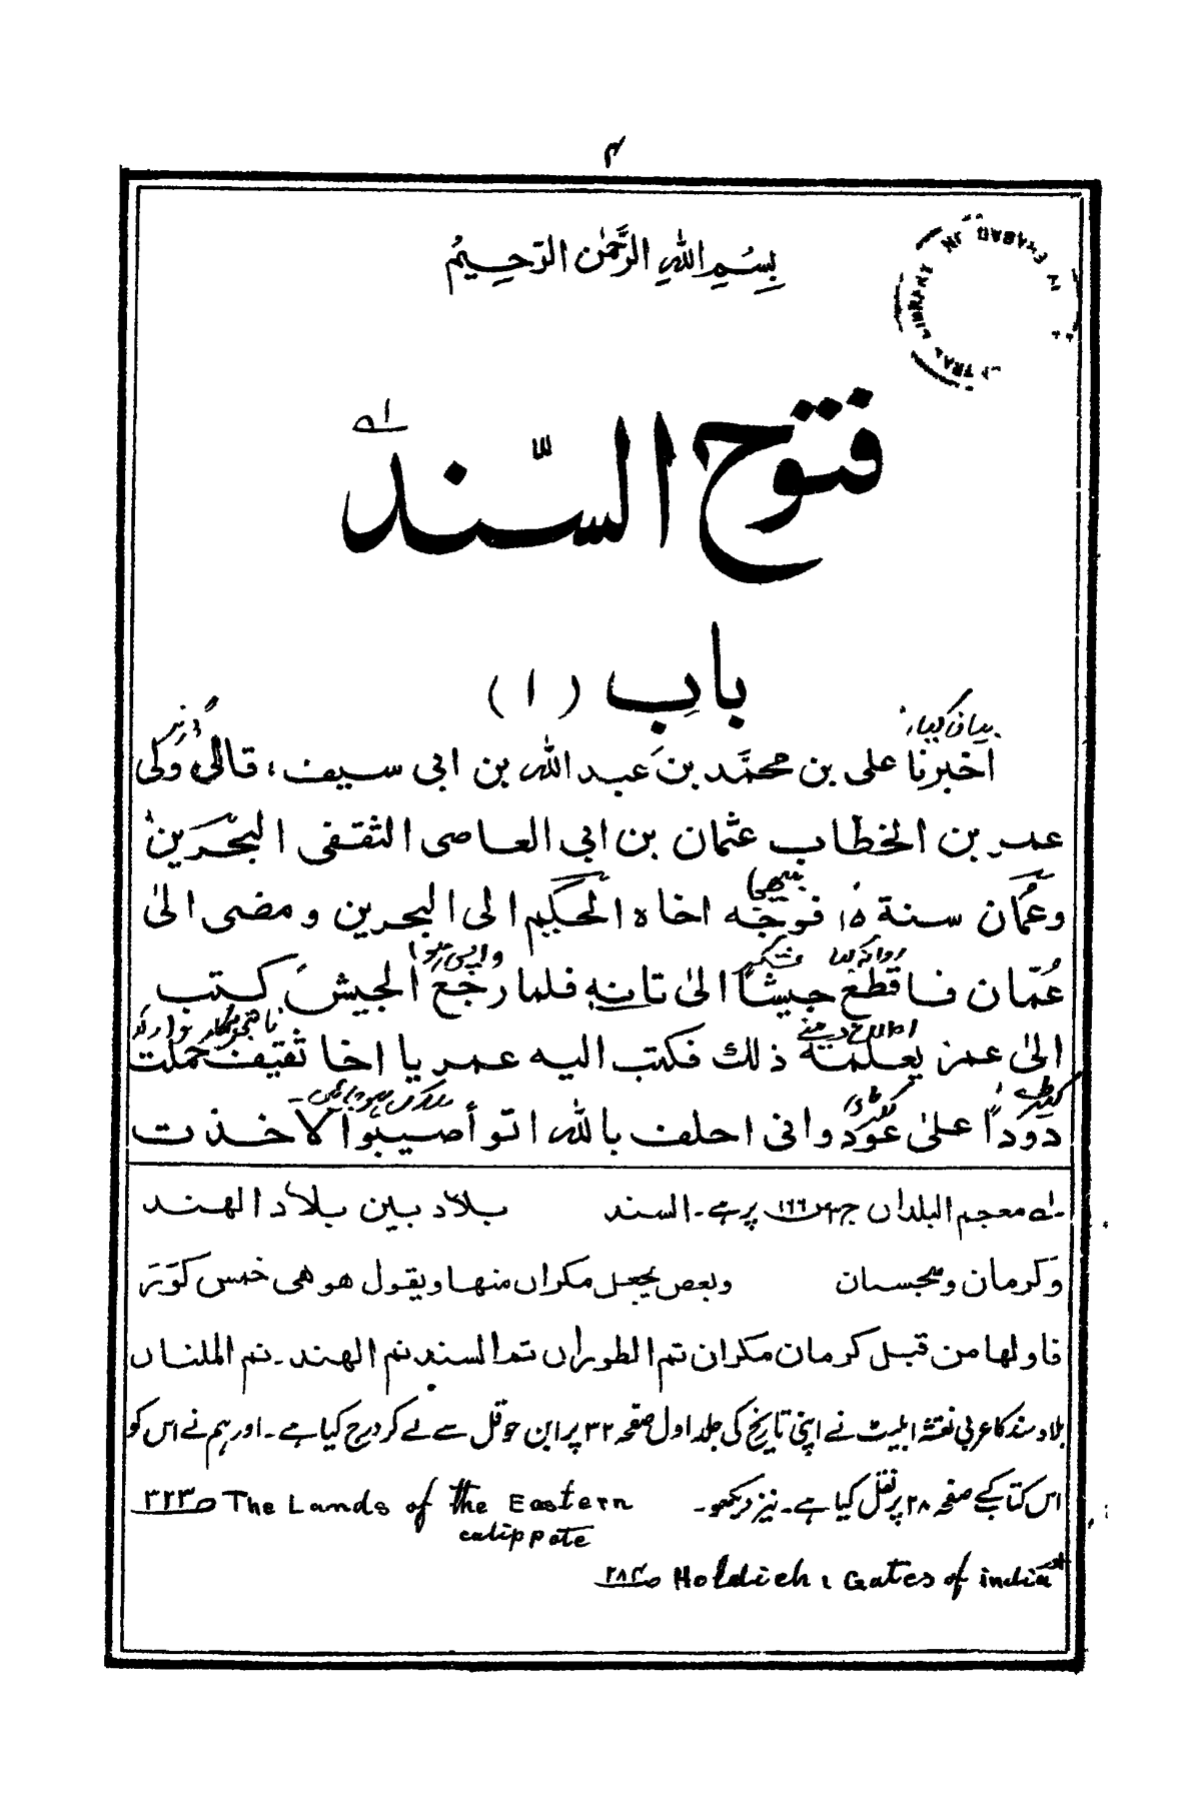 ۴
بِسْمِ اللهِ الرَّحْمٰنِ الرَّحِيْمُ
فتوح السّند
باب (۱)
اخبرنا علی بن محمّد بن عبد اللّٰہ بن ابی سیف، قال وَلّی
عمر بن الخطاب عثمان بن ابی العاصی الثقفی البحرین
وعُمان سنة ۱۵ فوجّہ اخاہ الحکم الی البحرین ومضی الیٰ
عُمّان فاقطع جیشاً الیٰ تانہ فلما رجع الجیش کتب
الیٰ عمر یعلمہ ذلك فکتب الیہ عمر یا اخا ثقیف حملت
دوداً علیٰ عود وانی احلف باللّٰہ اَن لو أصیبوا لاخذت
۱ معجم البلدان پر ہے۔ السند بلاد بین بلاد الھند
وکرمان وسجستان وبعض یجعل مکران منھا ویقول ھو ھی خمس کُوَرَ
فاولھا من قبل کرمان مکران ثم الطوران ثم السند ثم الھند۔ ثم الملتان
بلاد سند کا عربی نقشہ ایلیٹ نے اپنی تاریخ کی جلد اول صفحہ ۳۲ پر ابن حوقل سے لے کر درج کیا ہے۔ اور ہم نے اس کو
اس کتاب کے صفحہ ۲۸ پر نقل کیا ہے۔ نیز دیکھو۔ The Lands of the Eastern calippate ص۳۲۳
Holdich : Gates of india